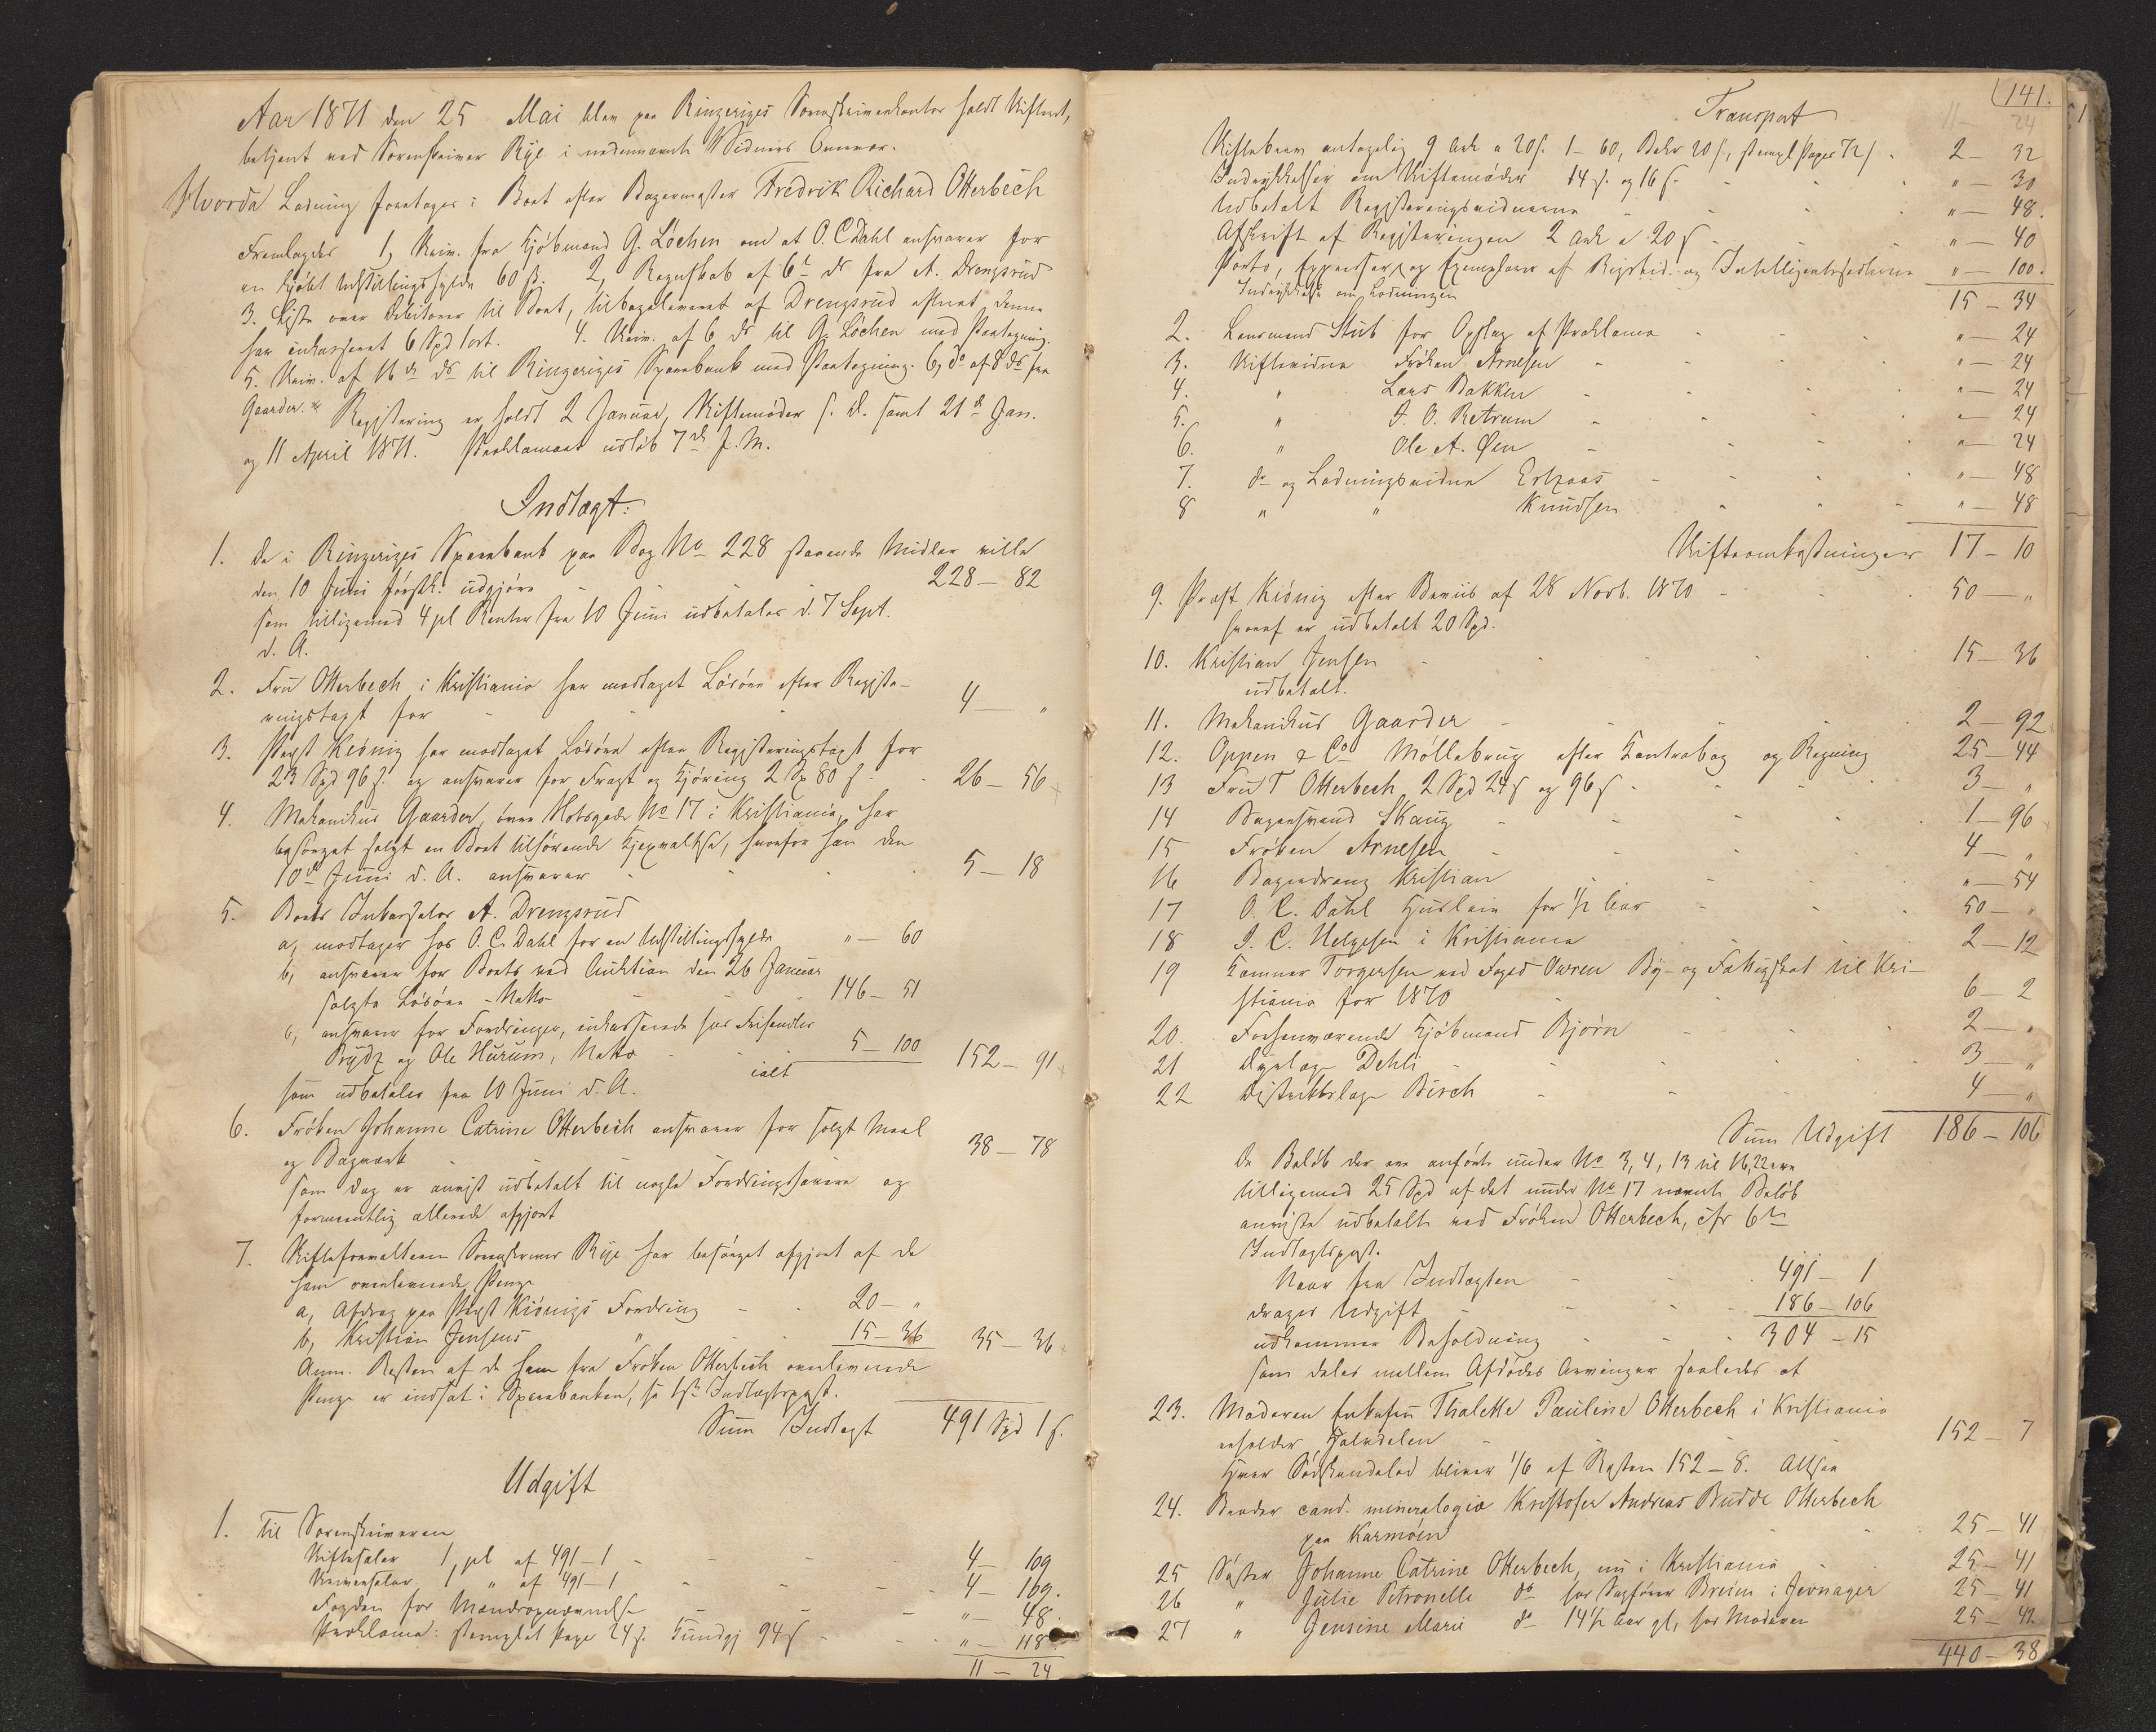 Aar 1871 den 25 Mai blev paa Ringeriges Sorenskriverkontor holdt Skifteret,
betjent ved Sorenskriver Rye i nedennævnte Vidners Overvær.
Hvorda Lodning foretoges i Boet efter Bagermester Fredrik Richard Otterbech
Fremlagdes 1, Skriv. fra Kjøbmand G. Løchen om at O. C. Dahl ansvarer for
en kjøbt Udstillingshylde 60 ß. 2, Regnskab af 6te ds fra A. Drengsrud
3. Liste over Debitorer til Boet, tilbageleveret af Drengsrud efterat denne
har inkasseret 6 Spd 1 ort. 4. Skriv. af 6 ds til G. Løchen med Paategning.
5. Skriv. af 16de ds til Ringeriges Sparebank med Paategning. 6, do af 8 ds fra
Gaarder. Registrering er holdt 2 Januar, Skiftemøder s. D. samt 21de Jan.
og 11 April 1871. Proklamaet udløb 7de f. M.
Indtægt:
1. De i Ringeriges Sparebank paa Bog No 228 staaende Midler ville
den 10 Juni førstk. udgjøre 228 – 82
som tilligemed 4 pCt Renter fra 10 Juni udbetales d. 7 Sept.
d. A.
2. Fru Otterbech i Kristiania har modtaget Løsøre efter Registe-
ringstaxt for 4 – "
3. Prest Kiønig har modtaget Løsøre efter Registreringstaxt for
23 Spd 96 ß. og ansvarer for Fragt og Kjøring 2 Sp 80 ß 26 – 56
4. Mekanikus Gaarder, øvre Slotsgade No 17 i Kristiania, har
besørget solgt en Boet tilhørende Kjexvaltse, hvorfor han den
10de Juni d. A. ansvarer 5 – 18
5. Boets Inkassator A. Drengsrud
a, modtager hos O. C. Dahl for en Udstillingshylde " – 60
b, ansvarer for Boets ved Auktion den 26 Januar
solgte Løsøre – Netto 146 – 51
c, ansvarer for Fordringer, inkasserede hos
og Ole Hurum, Netto 5 – 100
ialt 152 – 91
som udbetales fra 10 Juni d. A.
6. Frøken Johanne Catrine Otterbech ansvarer for solgt Meel
og Bagværk 38 – 78
som dog er anvist udbetalt til nogle Fordringshavere og
formentlig allerede afgjort
7. Skifteforvalteren Sorenskriver Rye har besørget afgjort af de
ham overleverede Penge
a, Afdrag paa Prest Kiønigs Fordring 20 – "
b, Kristian Jensens " 15 – 36 35 – 36
Anm. Resten af de ham fra Frøken Otterbech overleverede
Penge er indsat i Sparebanken, se 1ste Indtægtspost.
Sum Indtægt 491 Spd 1 ß.
Udgift
1. Til Sorenskriveren
Skiftesalar 1 pCt af 491 – 1 4 – 109
Skriversalar 1 " af 491 – 1 4 – 109.
Fogden for Mændropnævnelse " – 48.
Proklama: stemplet Papr 24 ß. Kundgj 94 ß " – 118
11 – 24
141.
Transport 11 – 24
Skiftebrev antagelig 9 Ark a 20 ß. 1 – 60, Bekr 20 ß, stempl Papir 72 ß 2 – 32
Indrykkelser om Skiftemøder 14 ß. og 16 ß. " – 30
Udbetalt Registreringsvidnerne " – 48.
Afskrift af Registreringen 2 Ark a 20 ß " – 40
Porto, og Exemplarer af Rigstid. og Intelligentssedlerne " – 100.
Indrykkelse om Lodningen 15 – 34
2. Lensmand Stub for Opslag af Proklama " – 24
3. Skiftevidne Frøken Arnesen " – 24
4. " Lars Bakken " – 24
5. " J. O. Retrum " – 24
6. " Ole A. Øen " – 24
7. do og Lodningsvidne " – 48
8 " " Knudsen " – 48
Skifteomkostninger 17 – 10
9. Prest Kiønig efter Beviis af 28 Novb. 1870 50 – "
hvoraf er udbetalt 20 Spd.
10. Kristian Jensen 15 – 36
udbetalt.
11. Mekanikus Gaarder 2 – 92
12. Oppen & Co Møllebrug efter Kontrabog og Regning 25 – 44
13 Fru T Otterbech 2 Spd 24 ß og 96 ß 3 – "
14 Bagersvend Skaug 1 – 96
15 Frøken Arnesen 4 – "
16 Bagerdreng Kristian " – 54
17 O. C. Dahl Husleie for ½ Aar 50 – "
18 J. C. Helgesen i Kristiania 2 – 12
19 Kæmner Torgersen ved Foged Owren By- og Fattigskat til Kri-
stiania for 1870 6 – 2
20. Forhenværende Kjøbmand Bjørn 2 – "
21 Dyrlæge Dehli 3 – "
22 Distriktslæge Birch 4 – "
Sum Udgift 186 – 106
De Beløb der ere anførte under No 3, 4, 13 til 16, 22 ere
tilligemed 25 Spd af det under No 17 nævnte Beløb
anviste udbetalt ved Frøken Otterbech, cfr 6te
Indtægtspost.
Naar fra Indtægten 491 – 1
drages Udgift 186 – 106
udkommer Beholdning 304 – 15
som deles mellem Afdødes Arvinger saaledes at
23. Moderen Enkefru Thalette Pauline Otterbech i Kristiania
erholder Halvdelen 152 – 7
Hver Sødskendelod bliver 1/6 af Resten 152 – 8. Altsaa
24. Broder cand. mineralogiæ Kristofer Andreas Budde Otterbech
paa Karmøen 25 – 41
25 Søster Johanne Catrine Otterbech, nu i Kristiania 25 – 41
26 " Julie Petronelle do hos Sagfører Breien i Jevnager 25 – 41
27 " Jensine Marie do 14½ Aar gl, hos Moderen 25 – 42
440 – 38